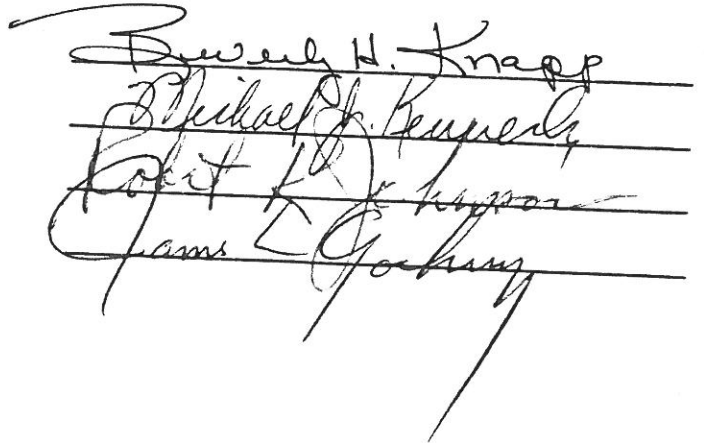 Beverly H. Knapp
Michael J. Kennerly
Robert K Johnson
James L